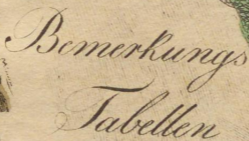 Bemerkungs
Tabellen